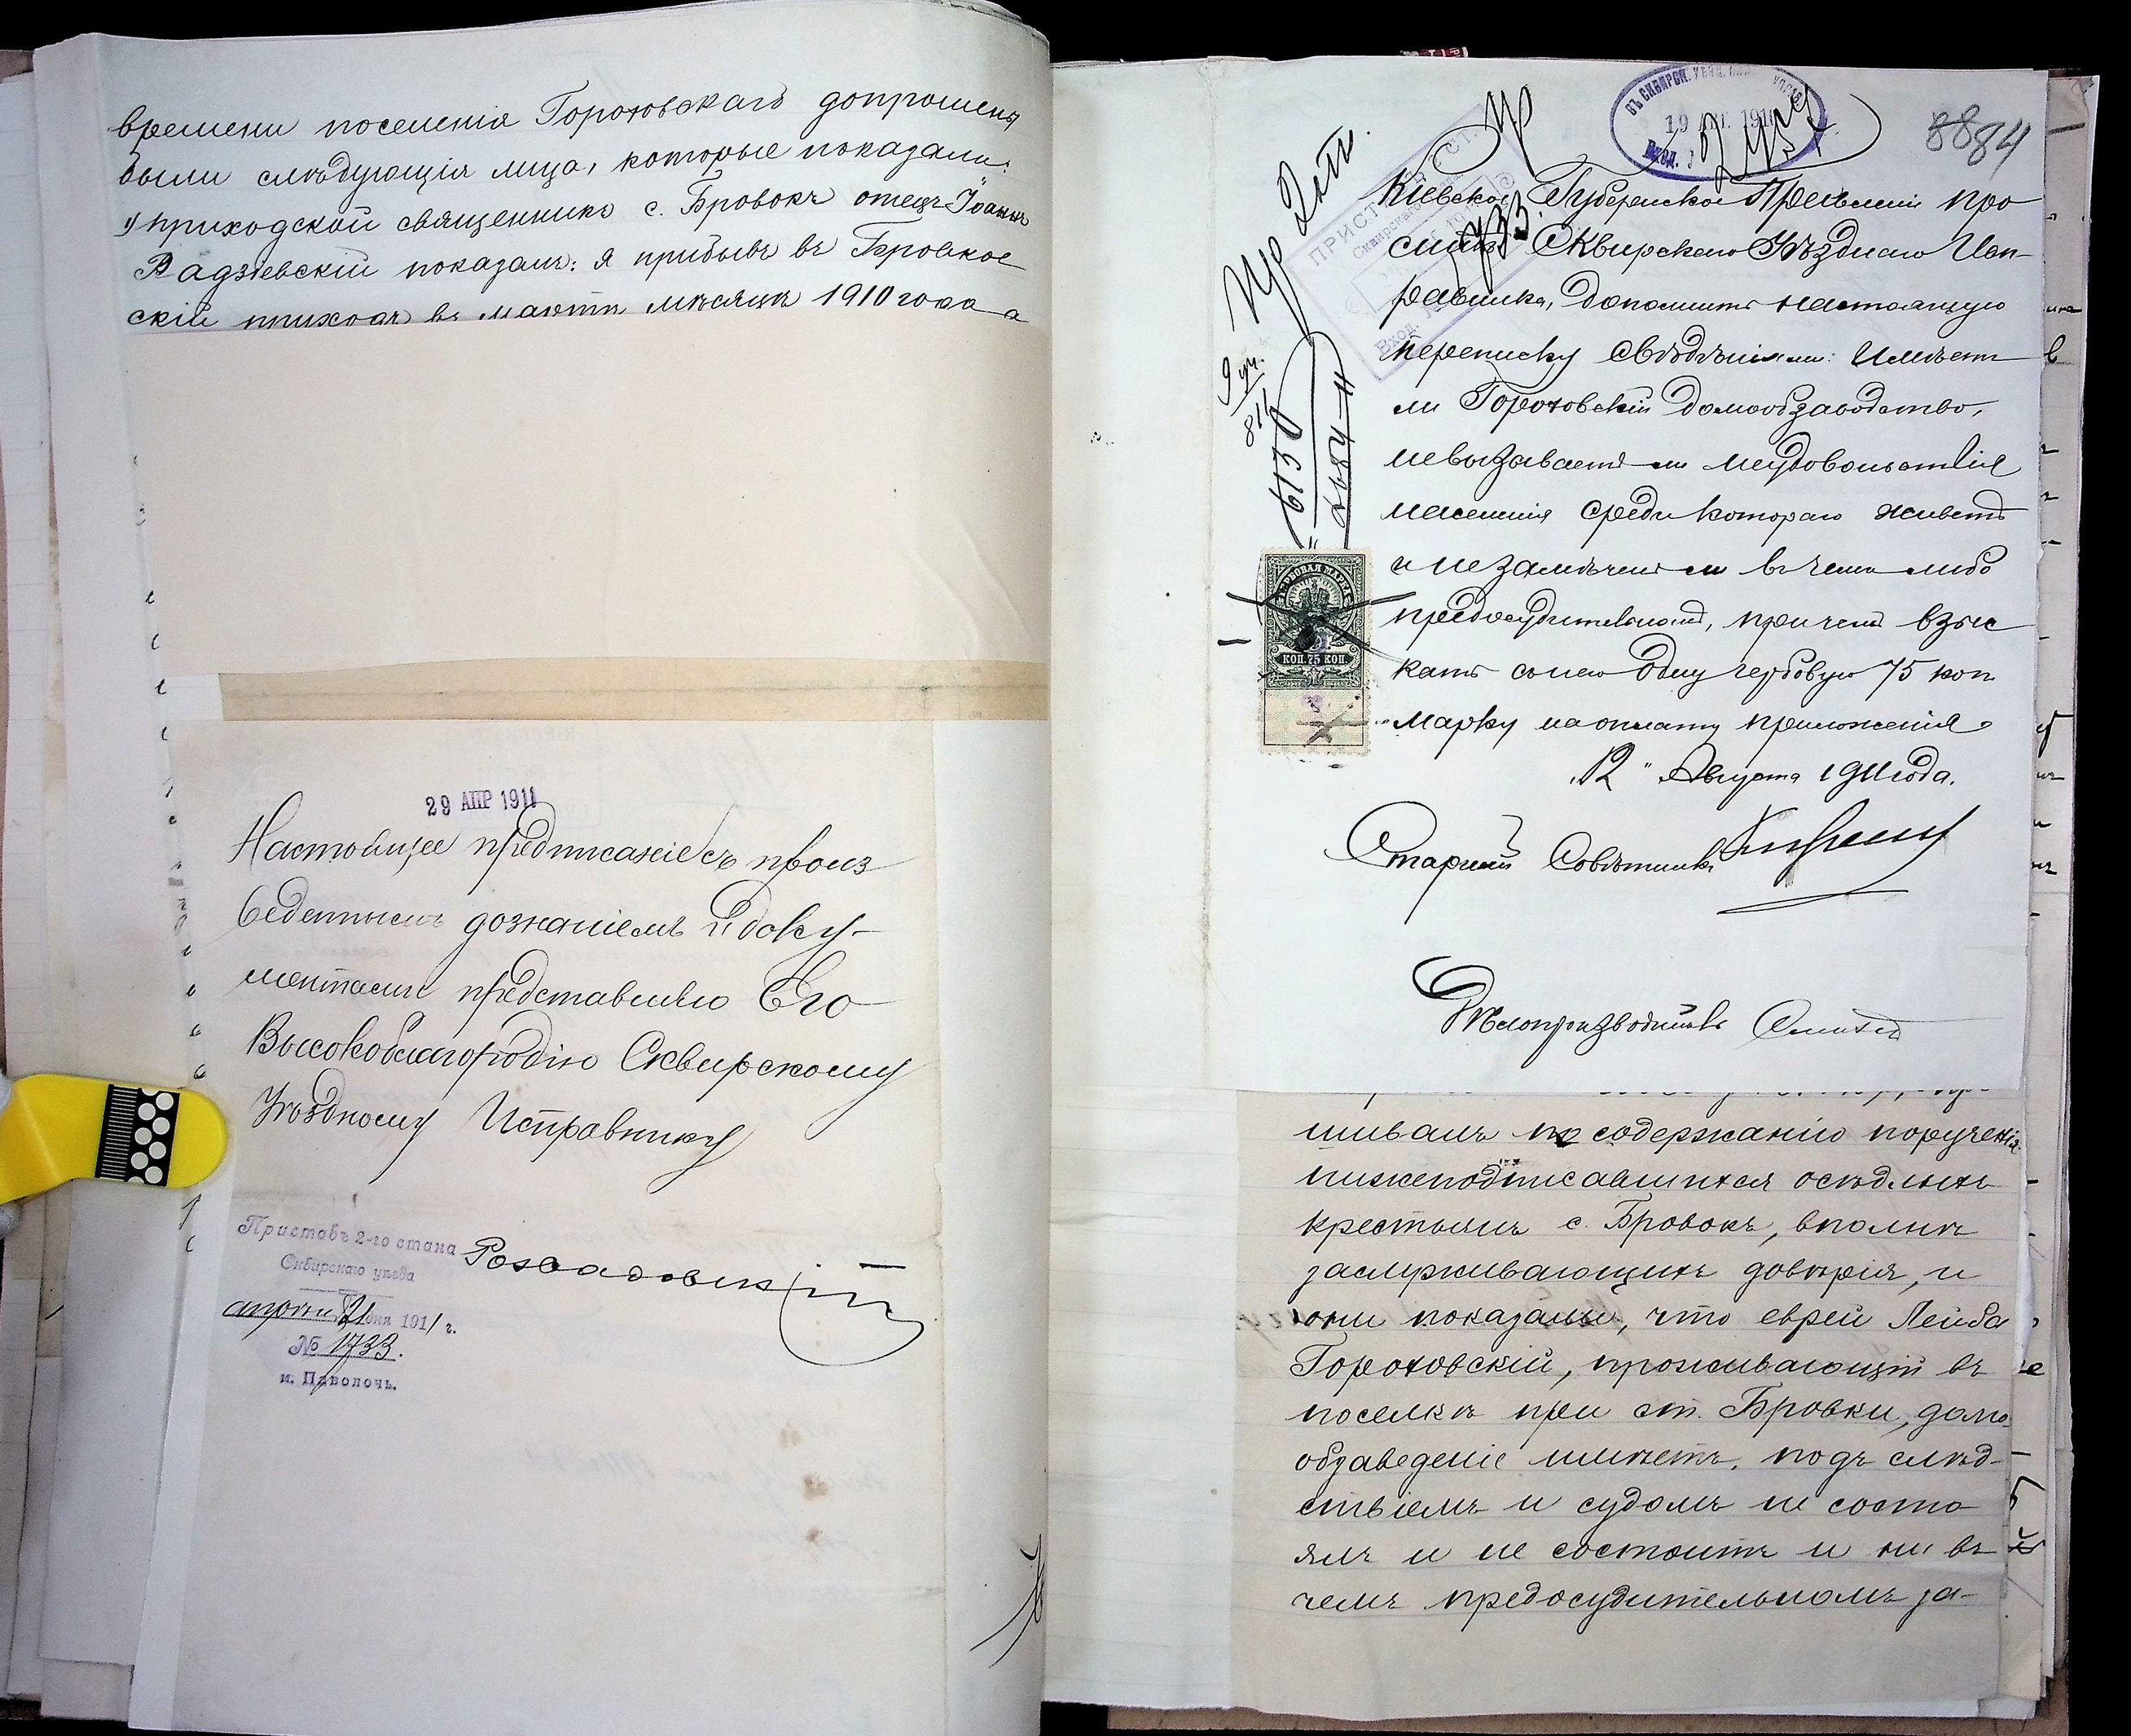 времени поселенія Гороховскаго допрошены
были слѣдующія лица, которые показали:
1) приходской священникъ с. Бровокъ отецъ Іоаннъ
Радзіевскій показалъ: я прибывъ въ Бровков
скій приходъ въ мартѣ мѣсяцѣ 1910 года а
29 АПР 1911
Настоящее предписаніе съ произ
веденнымъ дознаніемъ и доку-
ментами представляю Его
Высокоблагородію Сквирскому
Уѣздному Исправнику
Приставъ 2-го стана
Сквирскаго уѣзда
1911 г.
№ 1733.
м. Паволочь.
8884
Кіевское Губернское Правленіе про
ситъ Сквирскаго Уѣзднаго Исп-
равника, дополнить настоящую
переписку свѣдѣніями: имѣетъ
ли Гороховскій домообзаводство,
не вызываетъ ли неудовольствія
населенія среди котораго живетъ
и не замѣченъ ли въ чемъ либо
предосудительномъ, при чемъ взыс
кать съ него одну гербовую 75 коп.
марку на оплату приложенія.
"12" Августа 1911 года.
Старшій Совѣтникъ
Дѣлопроизводитель
6150
ГЕРБОВАЯ МАРКА
КОП. 75 КОП
шивалъ по содержанію порученія
нижеподписавшихся осѣдлыхъ
крестьянъ с. Бровокъ, вполнѣ
заслуживающихъ довѣрія, и
они показали, что еврей Лейба
Гороховскій, проживающій въ
поселкѣ при ст. Бровки, домо
обзаведеніе имѣетъ, подъ слѣд-
ствіемъ и судомъ не состо
ялъ и не состоитъ и ни въ
чемъ предосудительномъ за-